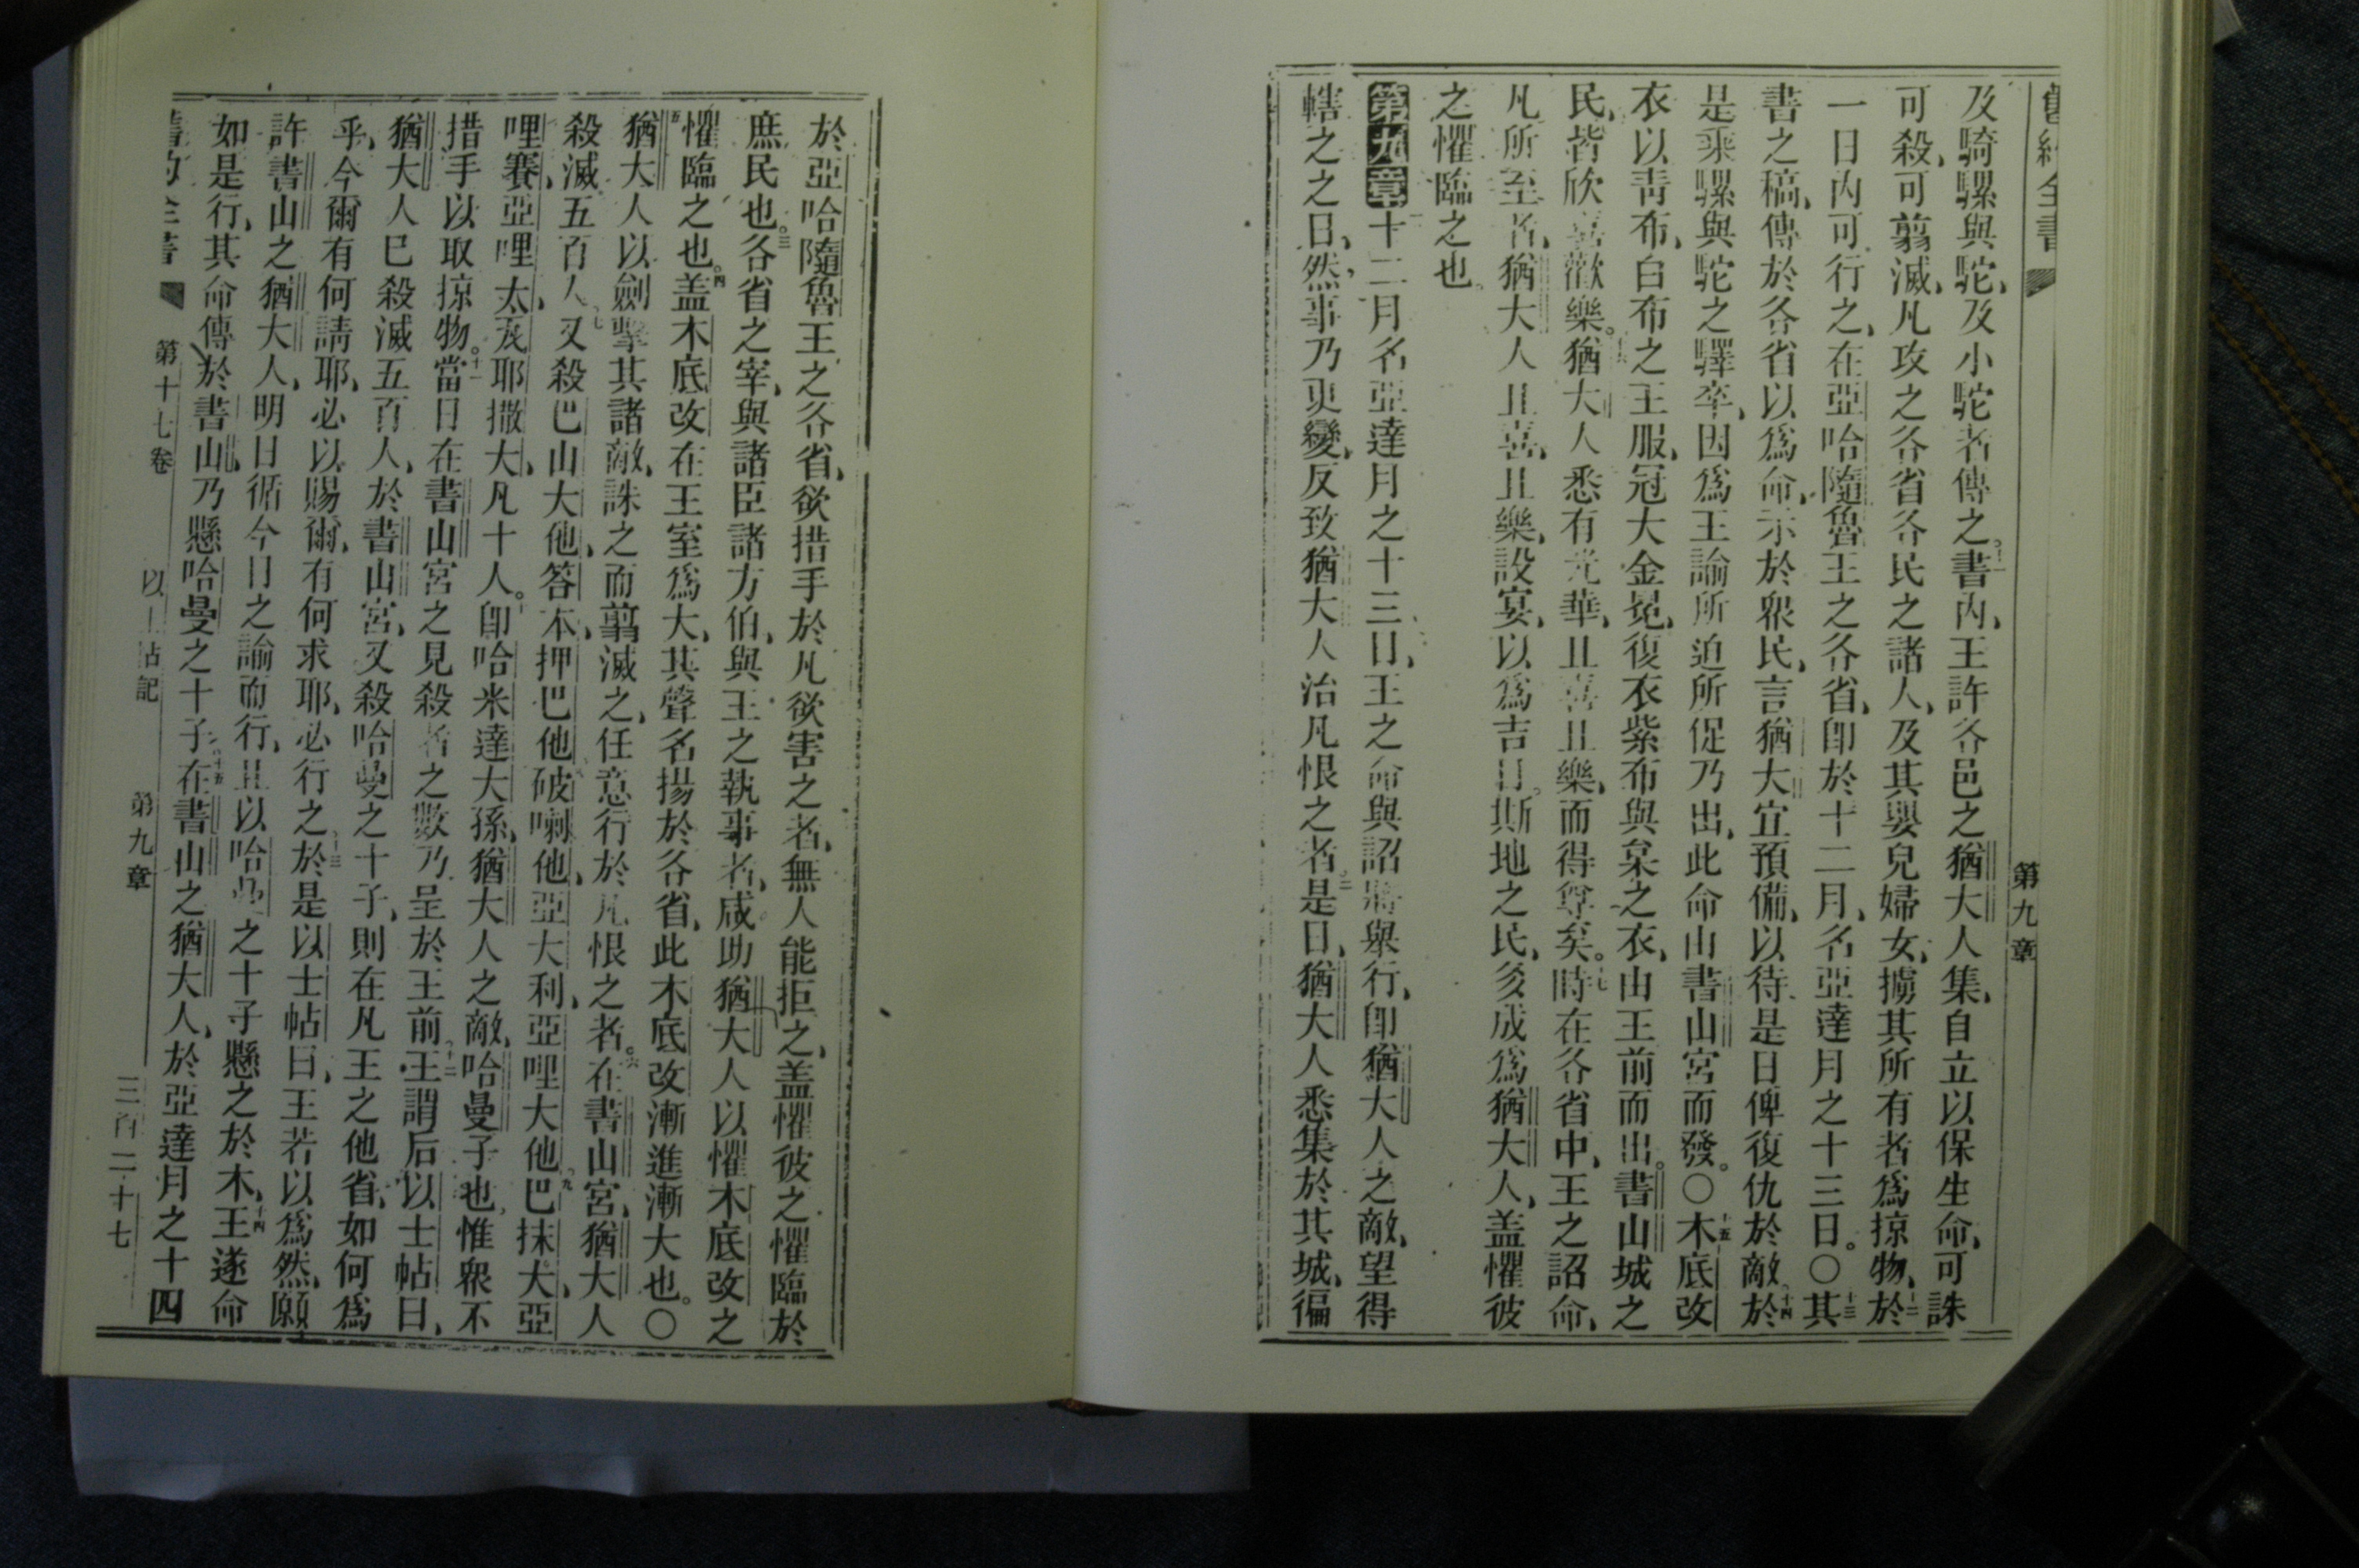 第九章
及騎騾與駝、及小駝者傳之。十一書內、王許各邑之猶大人集、自立以保生命、可誅
可殺、可翦滅、凡攻之各省各民之諸人、及其嬰兒婦女、擄其所有者爲掠物、十二於
一日內可行之、在亞哈隨魯王之各省、卽於十二月、名亞達月之十三日。〇十三其
書之稿、傳於各省以爲命、示於衆民、言猶大宜預備、以待是日俾復仇於敵、十四於
是乘騾與駝之驛卒、因爲王諭所迫所促乃出、此命由書山宮而發。〇十五木底改
衣以靑布、白布之王服、冠大金冕、復衣紫布與枲之衣、由王前而出。書山城之
民、皆欣喜歡樂。十六猶大人悉有光華、且喜且樂、而得尊矣。十七時在各省中、王之詔命、
凡所至者、猶大人且喜、且樂、設宴、以爲吉日。斯地之民、多成爲猶大人、盖懼彼
之懼臨之也。
第九章十二月名亞達月之十三日、王之命與詔將舉行、卽猶大人之敵、望得
轄之之日、然、事乃更變、反致猶大人治凡恨之者。二是日、猶大人悉集於其城、徧
於亞哈隨魯王之各省、欲措手於凡欲害之者、無人能拒之、盖懼彼之懼臨於
庶民也。三各省之宰、與諸臣諸方伯、與王之執事者、咸助猶大人以懼木底改之
懼臨之也。四盖木底改在王室爲大、其聲名揚於各省、此木底改漸進漸大也。〇
五猶大人以劍擊其諸敵、誅之而翦滅之、任意行於凡恨之者。六在書山宮、猶大人
殺滅五百人。七又殺巴山大他、答本、押巴他八破喇他、亞大利、亞哩大他九巴抹大、亞
哩賽、亞哩太、瓦耶撒大、凡十人。十卽哈米達大孫、猶大人之敵、哈曼子也、惟衆不
措手以取掠物。十一當日在書山宮之見殺者之數乃呈於王前十二王謂后以士帖曰、
猶大人已殺滅五百人、於書山宮、又殺哈曼之十子、則在凡王之他省、如何爲
乎、今爾有何請耶、必以賜爾、有何求耶、必行之、十三於是以士帖曰、王若以爲然、願
許書山之猶大人、明日循今日之諭而行、且以哈曼之十子懸之於木、十四王遂命
如是行、其命傳於書山、乃懸哈曼之十子、十五在書山之猶大人、於亞達月之十四
第十七卷 以士帖記 第九章 三百二十七